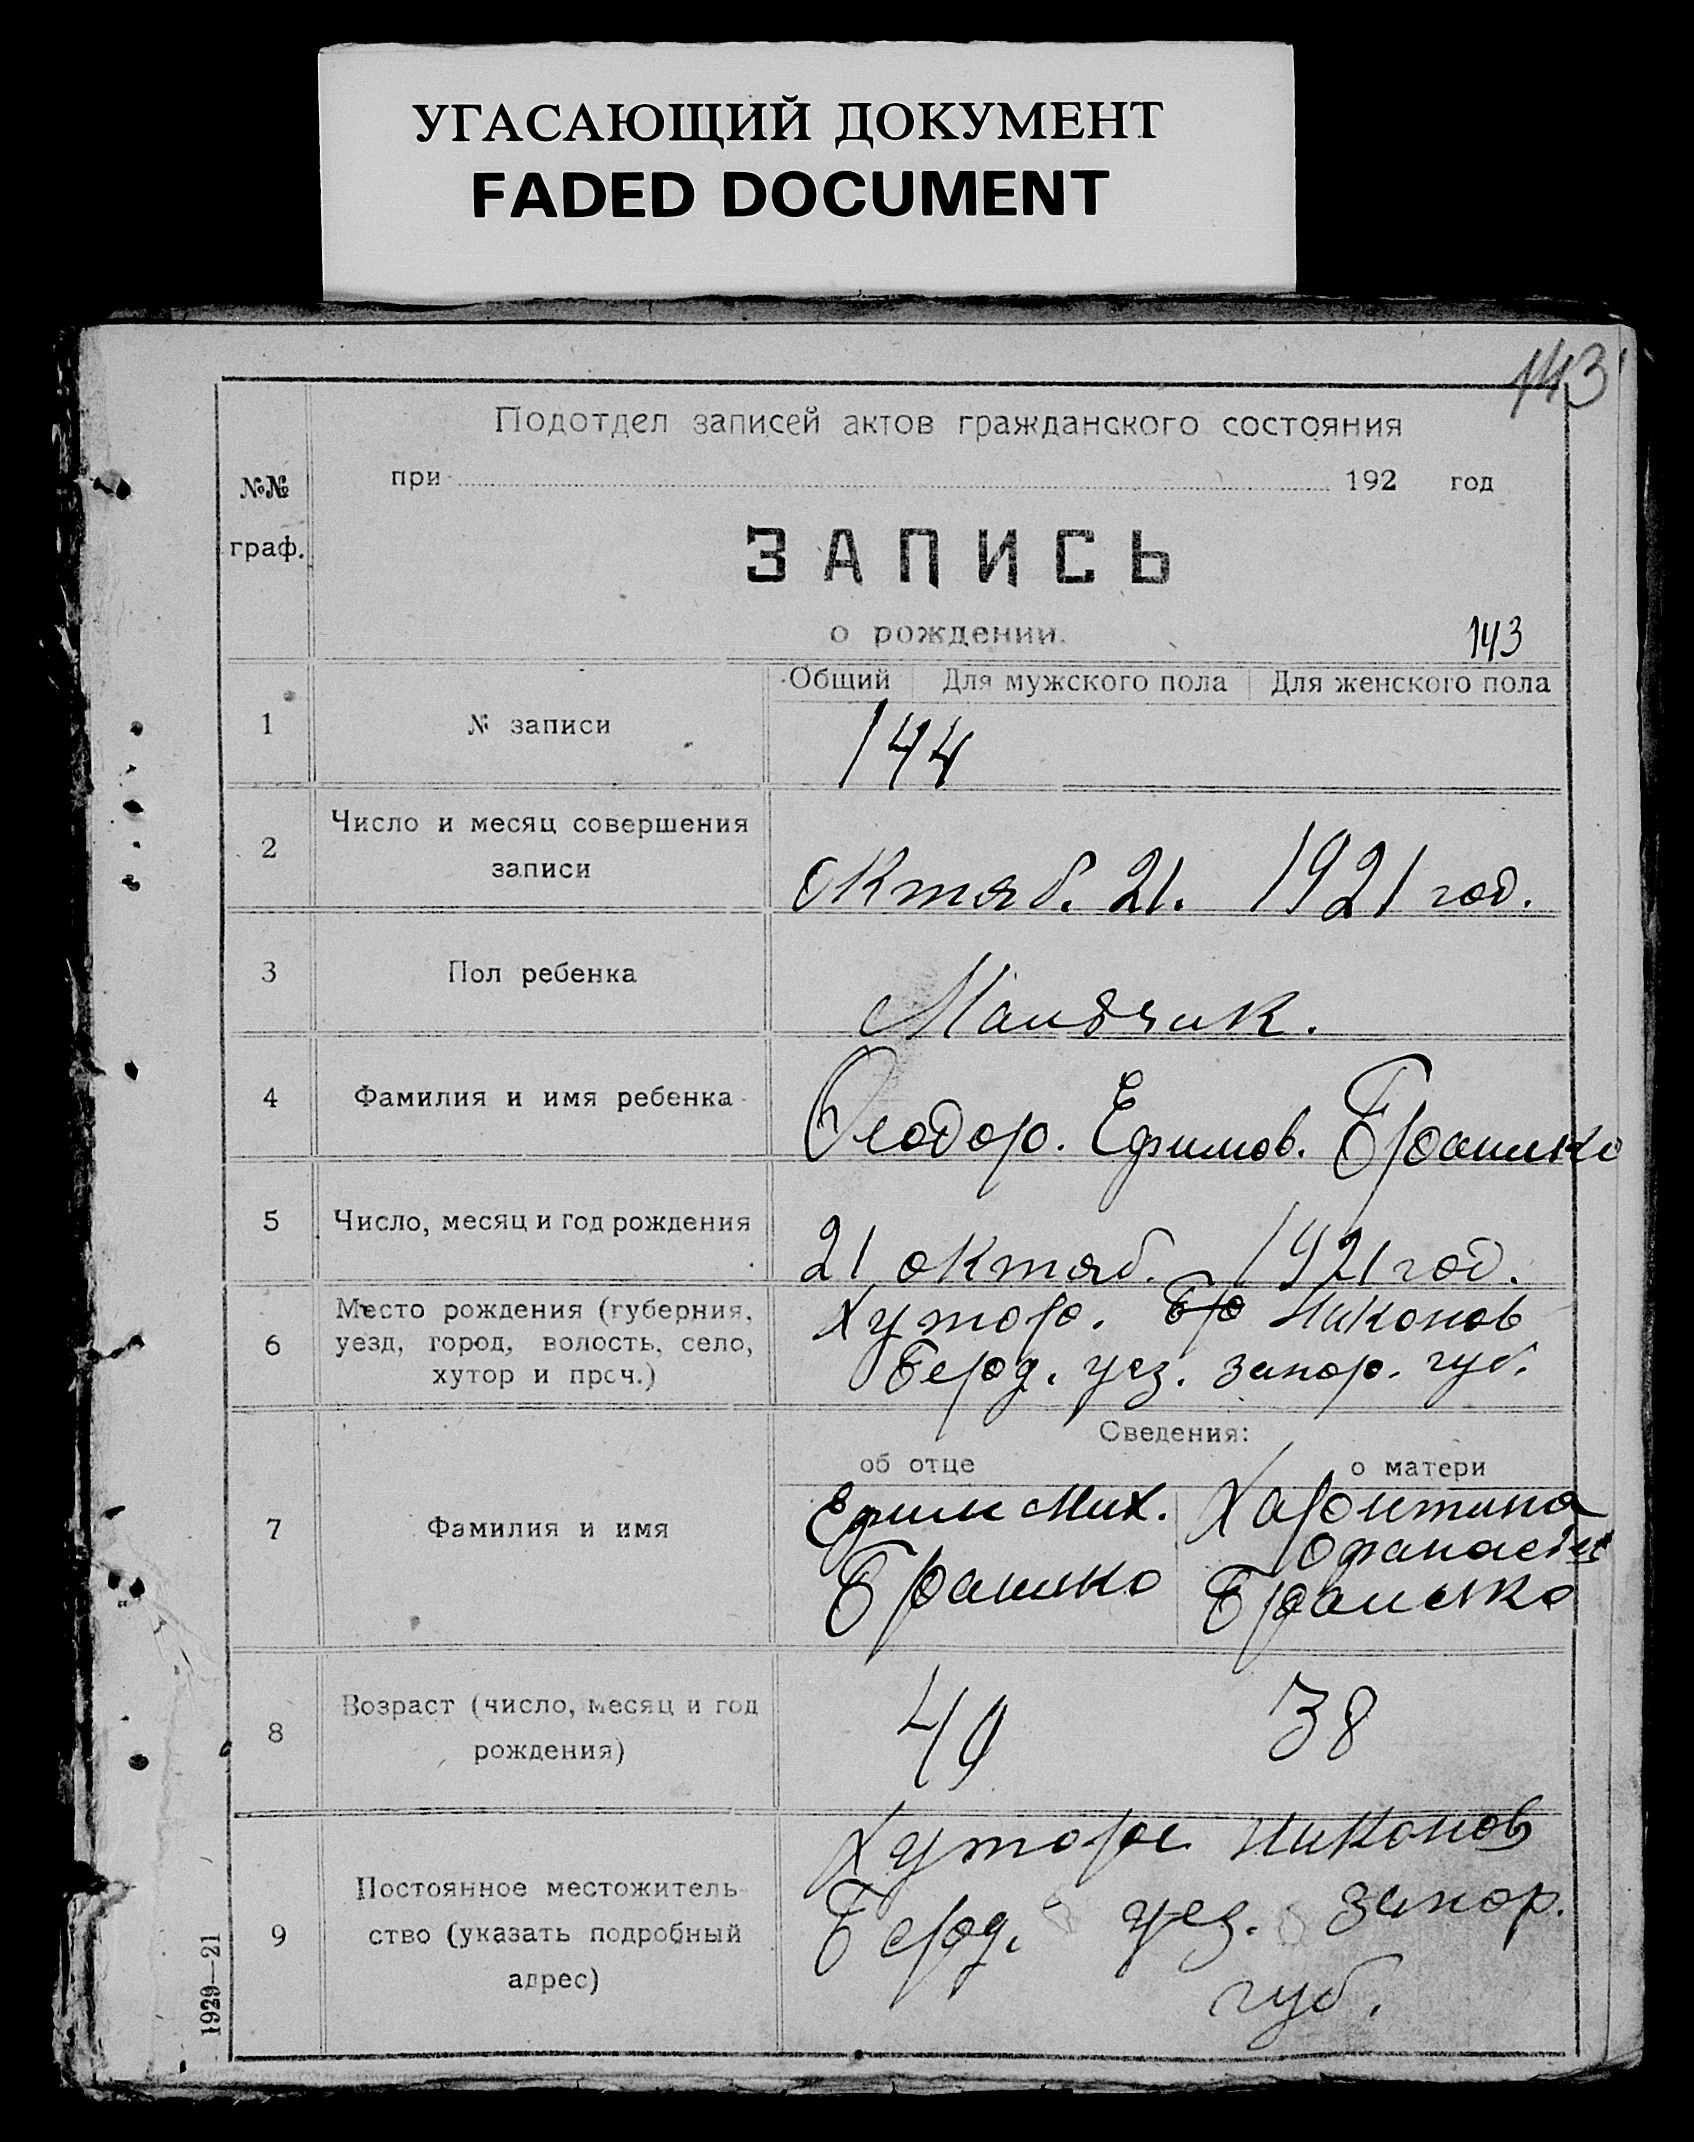 УГАСАЮЩИЙ ДОКУМЕНТ
FADED DOCUMENT
143
Подотдел записей актов гражданского состояния
при 192 год
№№
граф.
ЗАПИСЬ
о рождении.
143
Общий Для мужского пола Для женского пола
1 № записи 144
2 Число и месяц совершения
записи
Октяб. 21. 1921 год.
3 Пол ребенка Мальчик.
4 Фамилия и имя ребенка Феодор. Ефимов. Брашко
5 Число, месяц и год рождения 21 октяб. 1921 год.
6 Место рождения (губерния,
уезд, город, волость, село,
хутор и проч.)
Хутор. Никонов
Берд. уез. запор. губ.
Сведения:
об отце о матери
7 Фамилия и имя
Ефим Мих.
Брашко
Харитина
Брашко
8 Возраст (число, месяц и год
рождения)
40 38
9 Постоянное местожитель-
ство (указать подробный
адрес)
Хутор Никонов
Берд. уез. запор.
губ.
1929—21